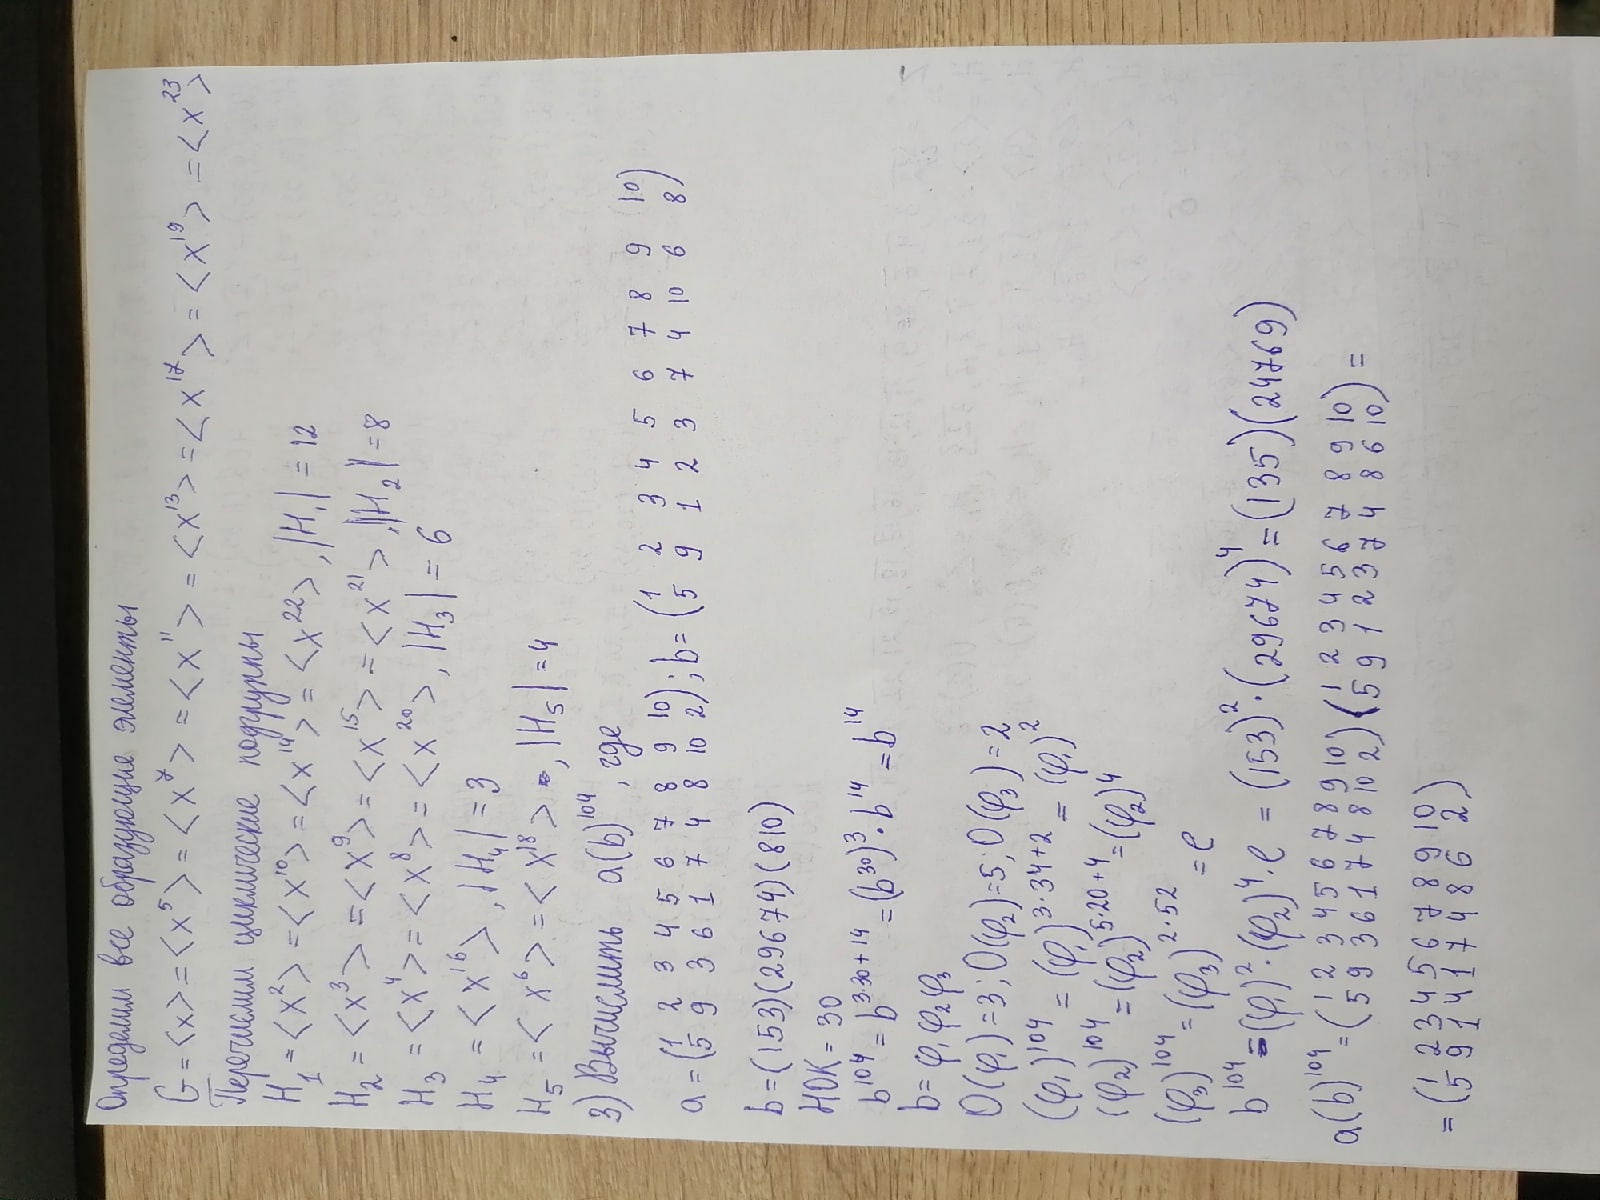 Определим все образующие элементы
G = <x> = <x⁵> = <x⁷> = <x¹¹> = <x¹³> = <x¹⁷> = <x¹⁹> = <x²³>
Перечислим циклические подгруппы
H₁ = <x²> = <x¹⁰> = <x¹⁴> = <x²²>, |H₁| = 12
H₂ = <x³> = <x⁹> = <x¹⁵> = <x²¹>, |H₂| = 8
H₃ = <x⁴> = <x⁸> = <x²⁰>, |H₃| = 6
H₄ = <x¹⁶>, |H₄| = 3
H₅ = <x⁶> = <x¹⁸>, |H₅| = 4
3) Вычислить a(b)¹⁰⁴, где
1 2 3 4 5 6 7 8 9 10 1 2 3 4 5 6 7 8 9 10
a = (5 9 3 6 1 7 4 8 10 2); b = (5 9 1 2 3 7 4 10 6 8)
b = (153)(29674)(810)
НОК = 30
b¹⁰⁴ = b³·³⁰⁺¹⁴ = (b³⁰)³ · b¹⁴ = b¹⁴
b = φ₁φ₂φ₃
O(φ₁) = 3; O(φ₂) = 5; O(φ₃) = 2
(φ₁)¹⁰⁴ = (φ₁)³·³⁴⁺² = (φ₁)²
(φ₂)¹⁰⁴ = (φ₂)⁵·²⁰⁺⁴ = (φ₂)⁴
(φ₃)¹⁰⁴ = (φ₃)²·⁵² = e
b¹⁰⁴ = (φ₁)² · (φ₂)⁴ · e = (153)² · (29674)⁴ = (135)(24769)
1 2 3 4 5 6 7 8 9 10 1 2 3 4 5 6 7 8 9 10
a(b)¹⁰⁴ = (5 9 3 6 1 7 4 8 10 2)(5 9 1 2 3 7 4 8 6 10) =
1 2 3 4 5 6 7 8 9 10
= (5 9 1 4 1 7 4 8 6 2)